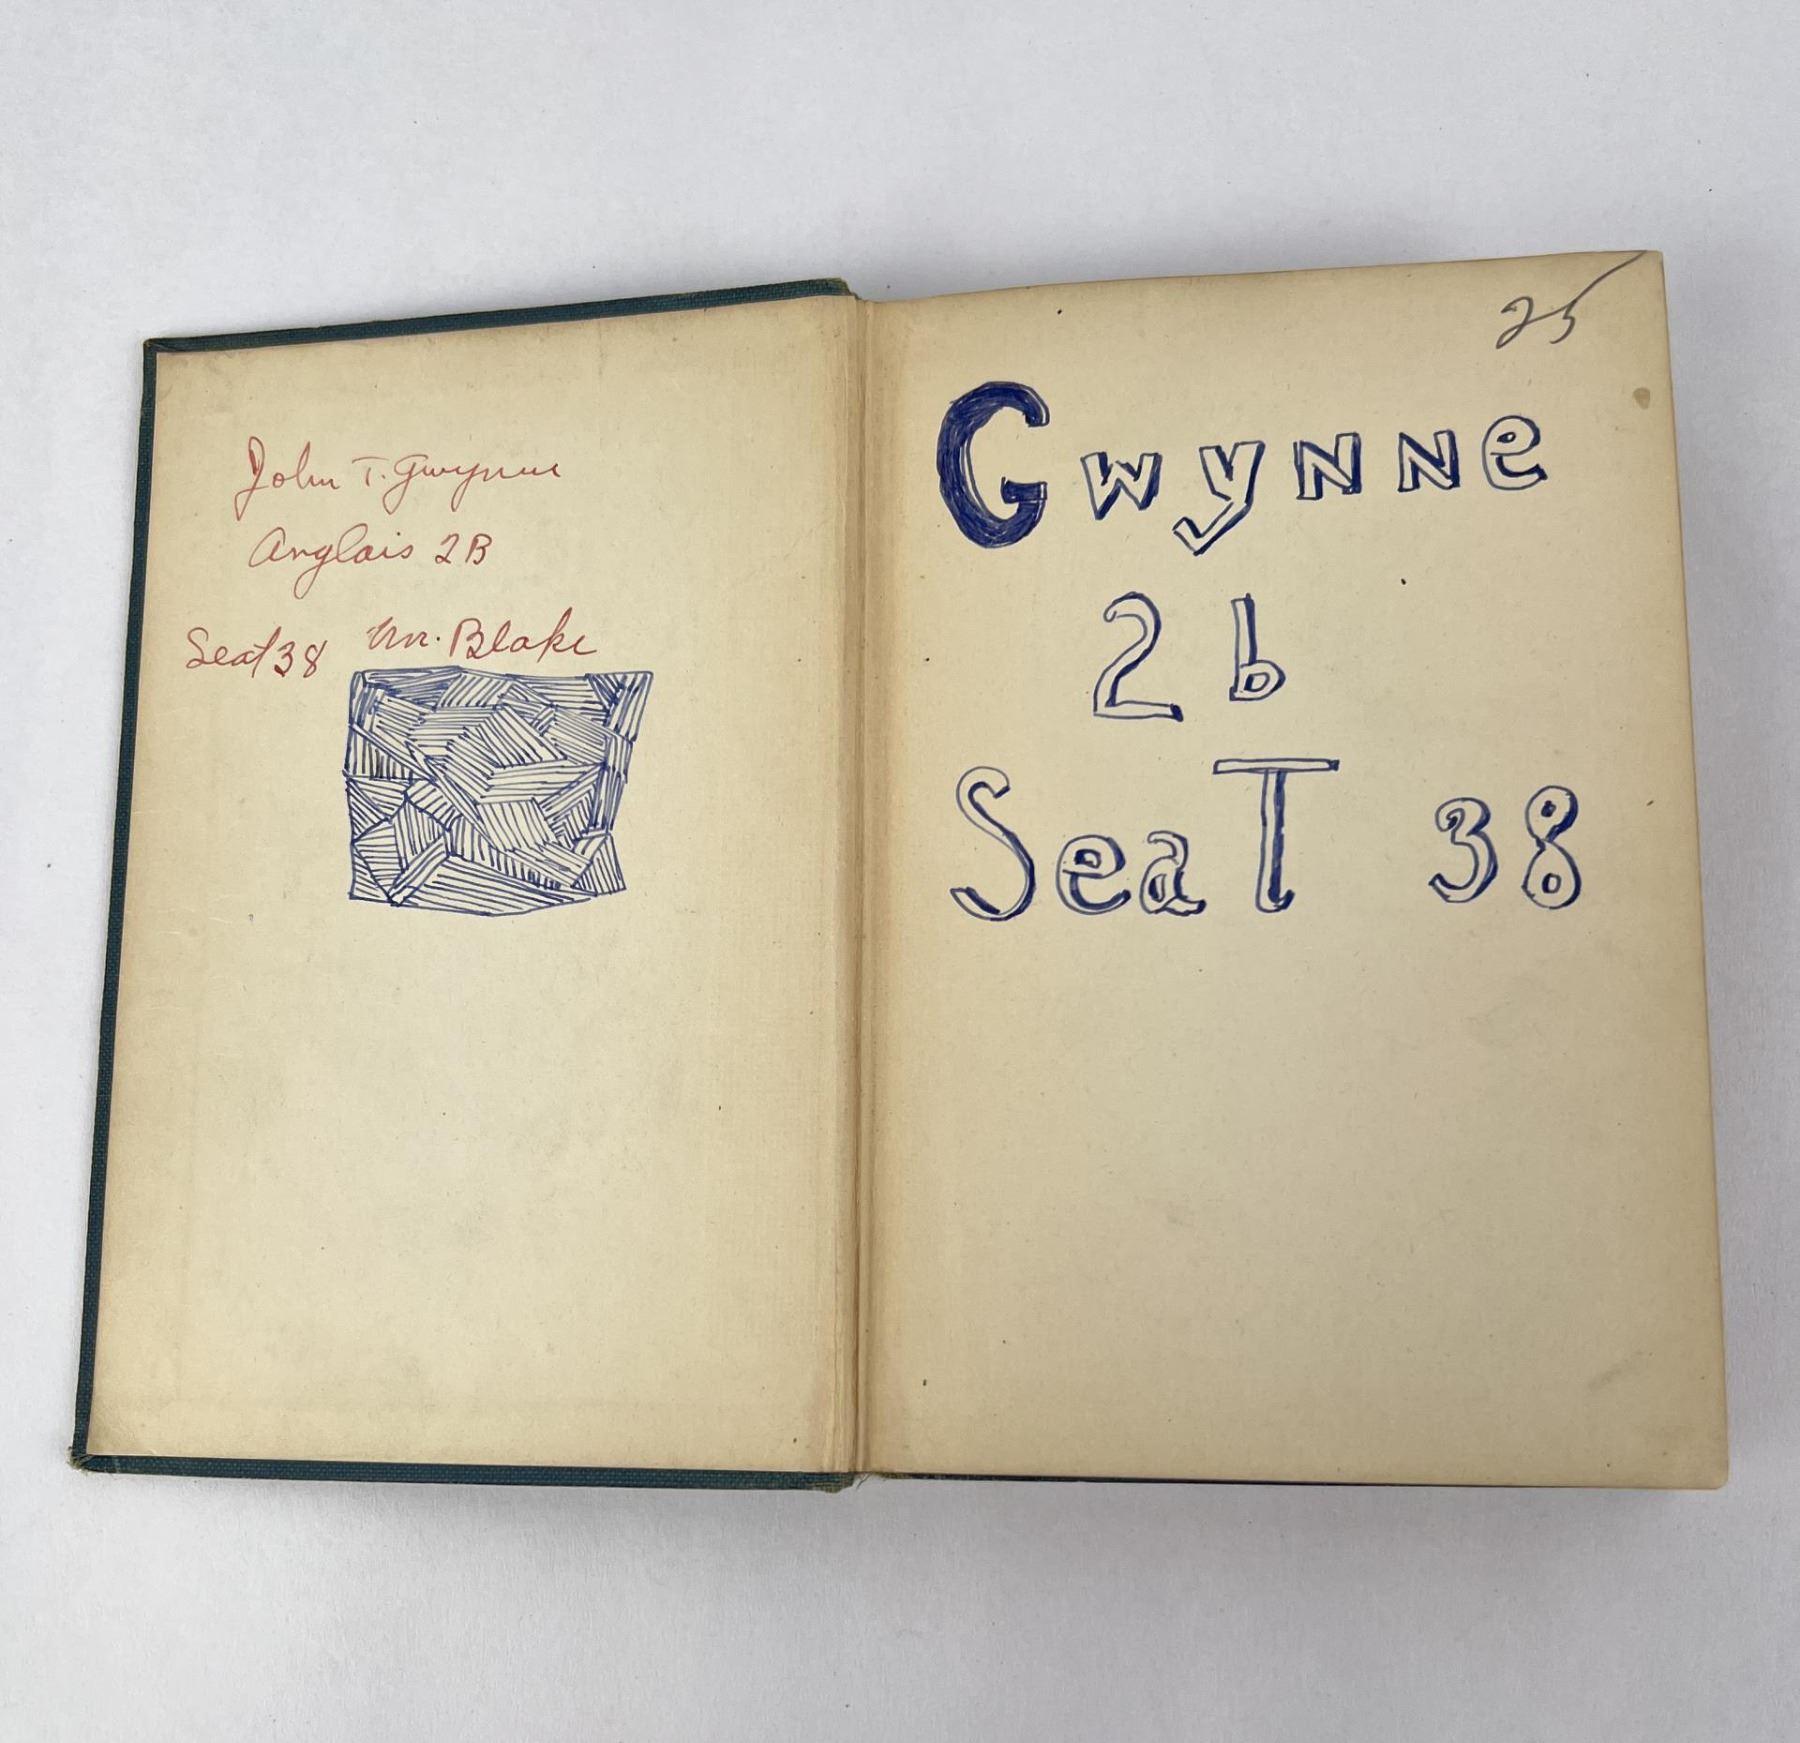 John T. Gwynne
Anglais 2B
Seat 38 Mr. Blake
25
Gwynne
2b
SeaT 38